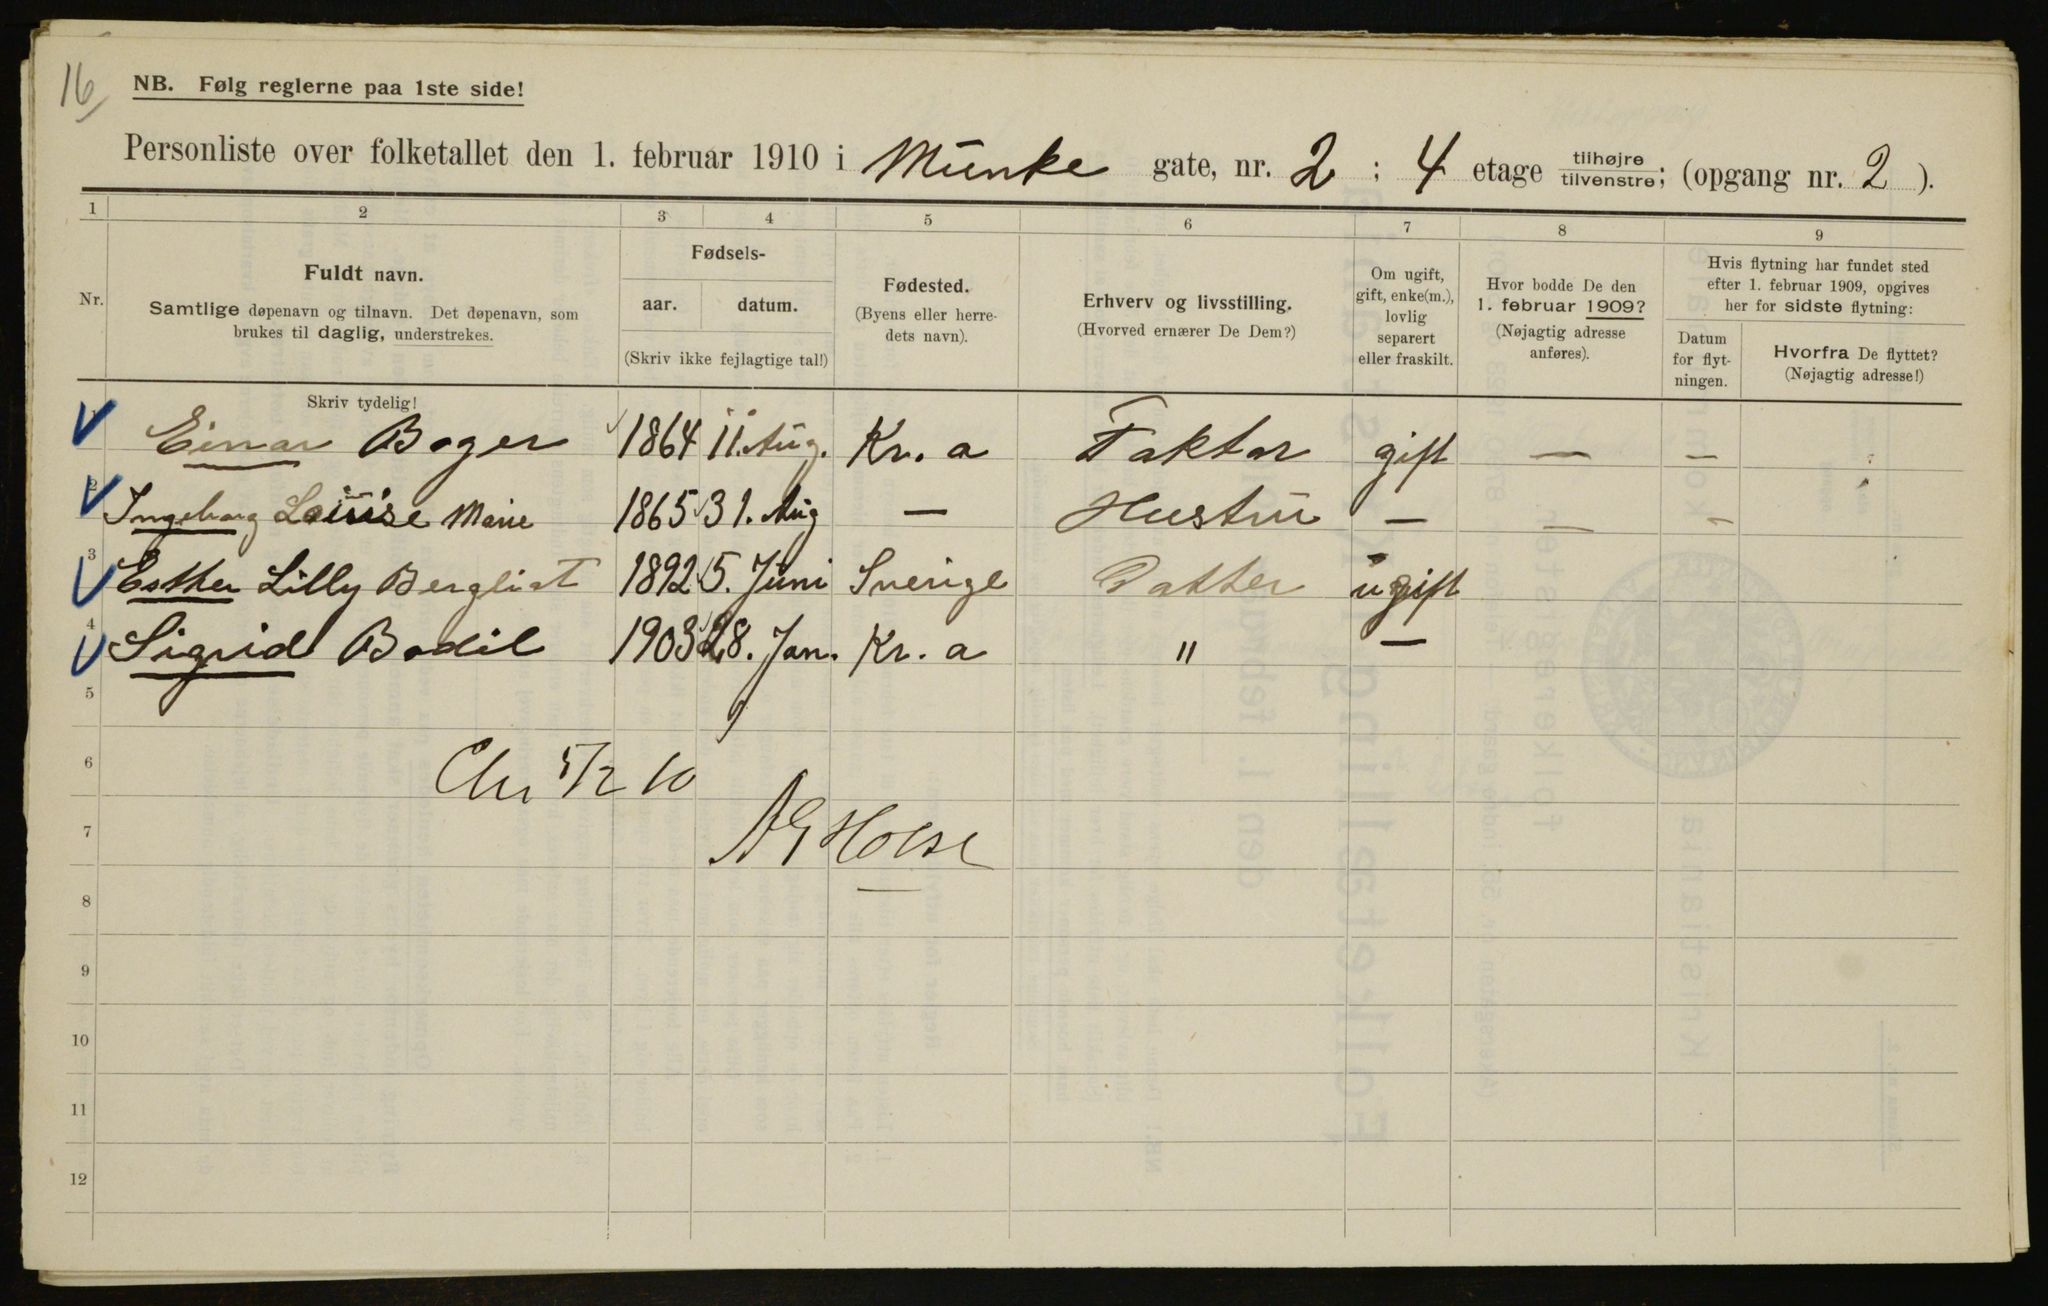 16
NB. Følg reglerne paa 1ste side!
Personliste over folketallet den 1. februar 1910 i Munke gate, nr. 2 ; 4 etage tilhøjre tilvenstre; (opgang nr. 2 ).
1 2 3 4 5 6 7 8 9
Nr.
Fuldt navn.
Samtlige døpenavn og tilnavn. Det døpenavn, som
brukes til daglig, understrekes.
Fødsels-
aar. datum.
(Skriv ikke fejlagtige tal!)
Fødested.
(Byens eller herre-
dets navn).
Erhverv og livsstilling.
(Hvorved ernærer De Dem?)
Om ugift,
gift, enke(m.),
lovlig
separert
eller fraskilt.
Hvor bodde De den
1. februar 1909?
(Nøjagtig adresse
anføres).
Hvis flytning har fundet sted
efter 1. februar 1909, opgives
her for sidste flytning:
Datum
for flyt-
ningen.
Hvorfra De flyttet?
(Nøjagtig adresse!)
Skriv tydelig!
1 Einar Boger 1864 11. Aug. Kr. a Faktor gift — —
2 Ingeborg Louise Marie 1865 31. Aug — Hustru — — —
3 Esther Lilly Bergliot 1892 5. Juni Sverige Datter ugift
4 Sigrid Bodil 1903 28. Jan. Kr. a " —
5
6 Chr 5/2 10
7 AGHolse
8
9
10
11
12